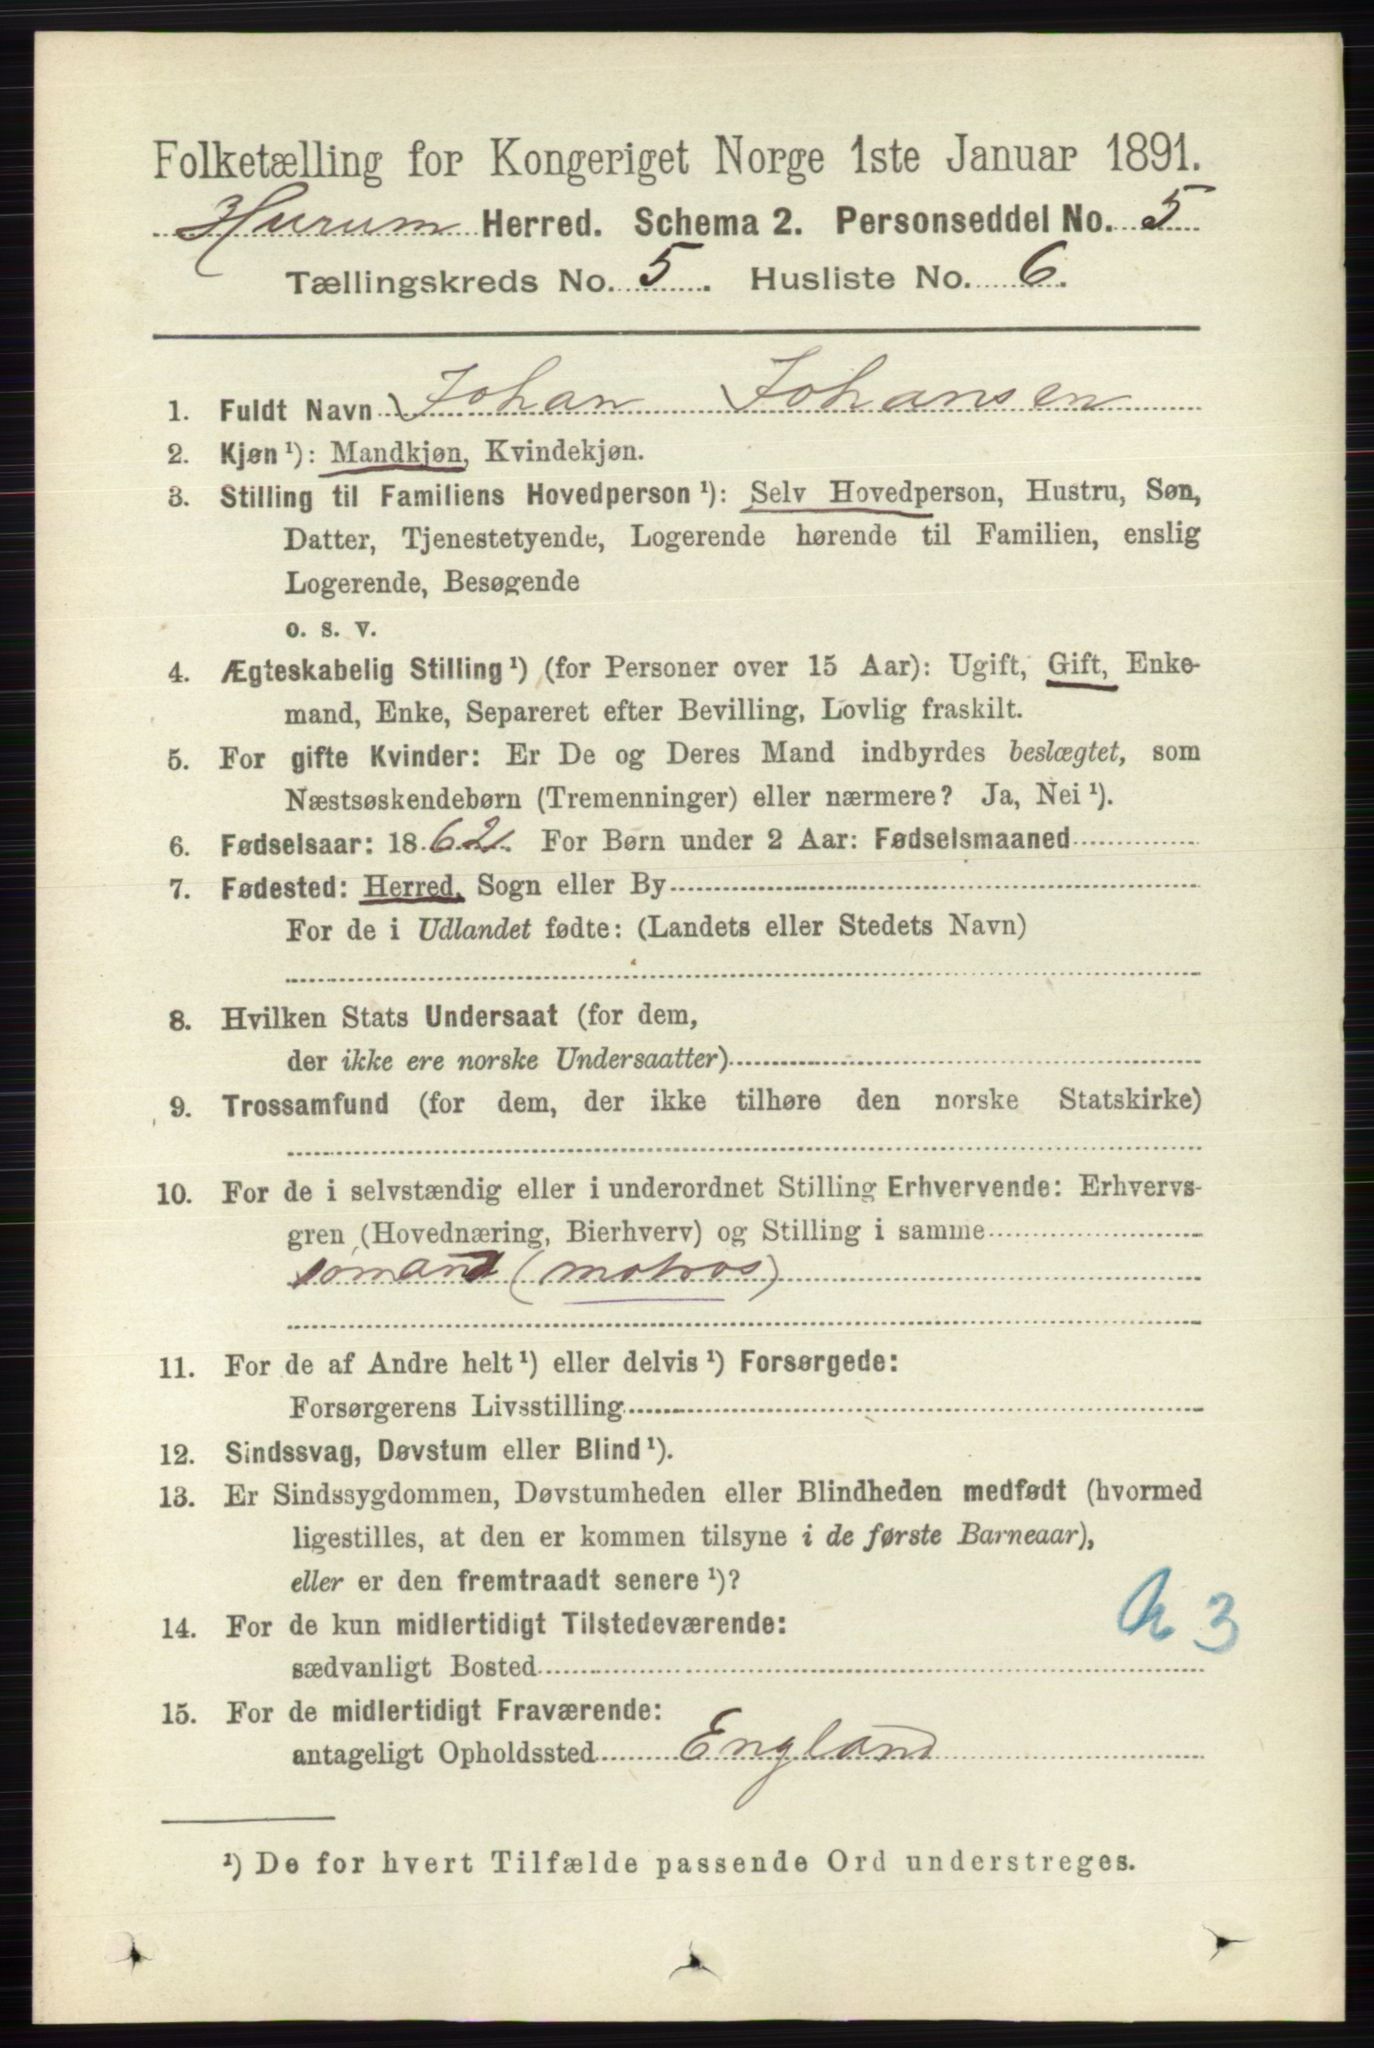 Folketælling for Kongeriget Norge 1ste Januar 1891.
Hurum Herred. Schema 2. Personseddel No. 5
Tællingskreds No. 5. Husliste No. 6.
1. Fuldt Navn Johan Johansen
2. Kjøn ¹): Mandkjøn, Kvindekjøn.
3. Stilling til Familiens Hovedperson ¹): Selv Hovedperson, Hustru, Søn,
Datter, Tjenestetyende, Logerende hørende til Familien, enslig
Logerende, Besøgende
o. s. v.
4. Ægteskabelig Stilling ¹) (for Personer over 15 Aar): Ugift, Gift, Enke-
mand, Enke, Separeret efter Bevilling, Lovlig fraskilt.
5. For gifte Kvinder: Er De og Deres Mand indbyrdes beslægtet, som
Næstsøskendebørn (Tremenninger) eller nærmere? Ja, Nei ¹).
6. Fødselsaar: 1862. For Børn under 2 Aar: Fødselsmaaned
7. Fødested: Herred, Sogn eller By
For de i Udlandet fødte: (Landets eller Stedets Navn)
8. Hvilken Stats Undersaat (for dem,
der ikke ere norske Undersaatter)
9. Trossamfund (for dem, der ikke tilhøre den norske Statskirke)
10. For de i selvstændig eller i underordnet Stilling Erhvervende: Erhvervs-
gren (Hovednæring, Bierhverv) og Stilling i samme
sømand (matros)
11. For de af Andre helt ¹) eller delvis ¹) Forsørgede:
Forsørgerens Livsstilling
12. Sindssvag, Døvstum eller Blind ¹).
13. Er Sindssygdommen, Døvstumheden eller Blindheden medfødt (hvormed
ligestilles, at den er kommen tilsyne i de første Barneaar),
eller er den fremtraadt senere ¹)?
14. For de kun midlertidigt Tilstedeværende:
sædvanligt Bosted
3
15. For de midlertidigt Fraværende:
antageligt Opholdssted England
¹) De for hvert Tilfælde passende Ord understreges.